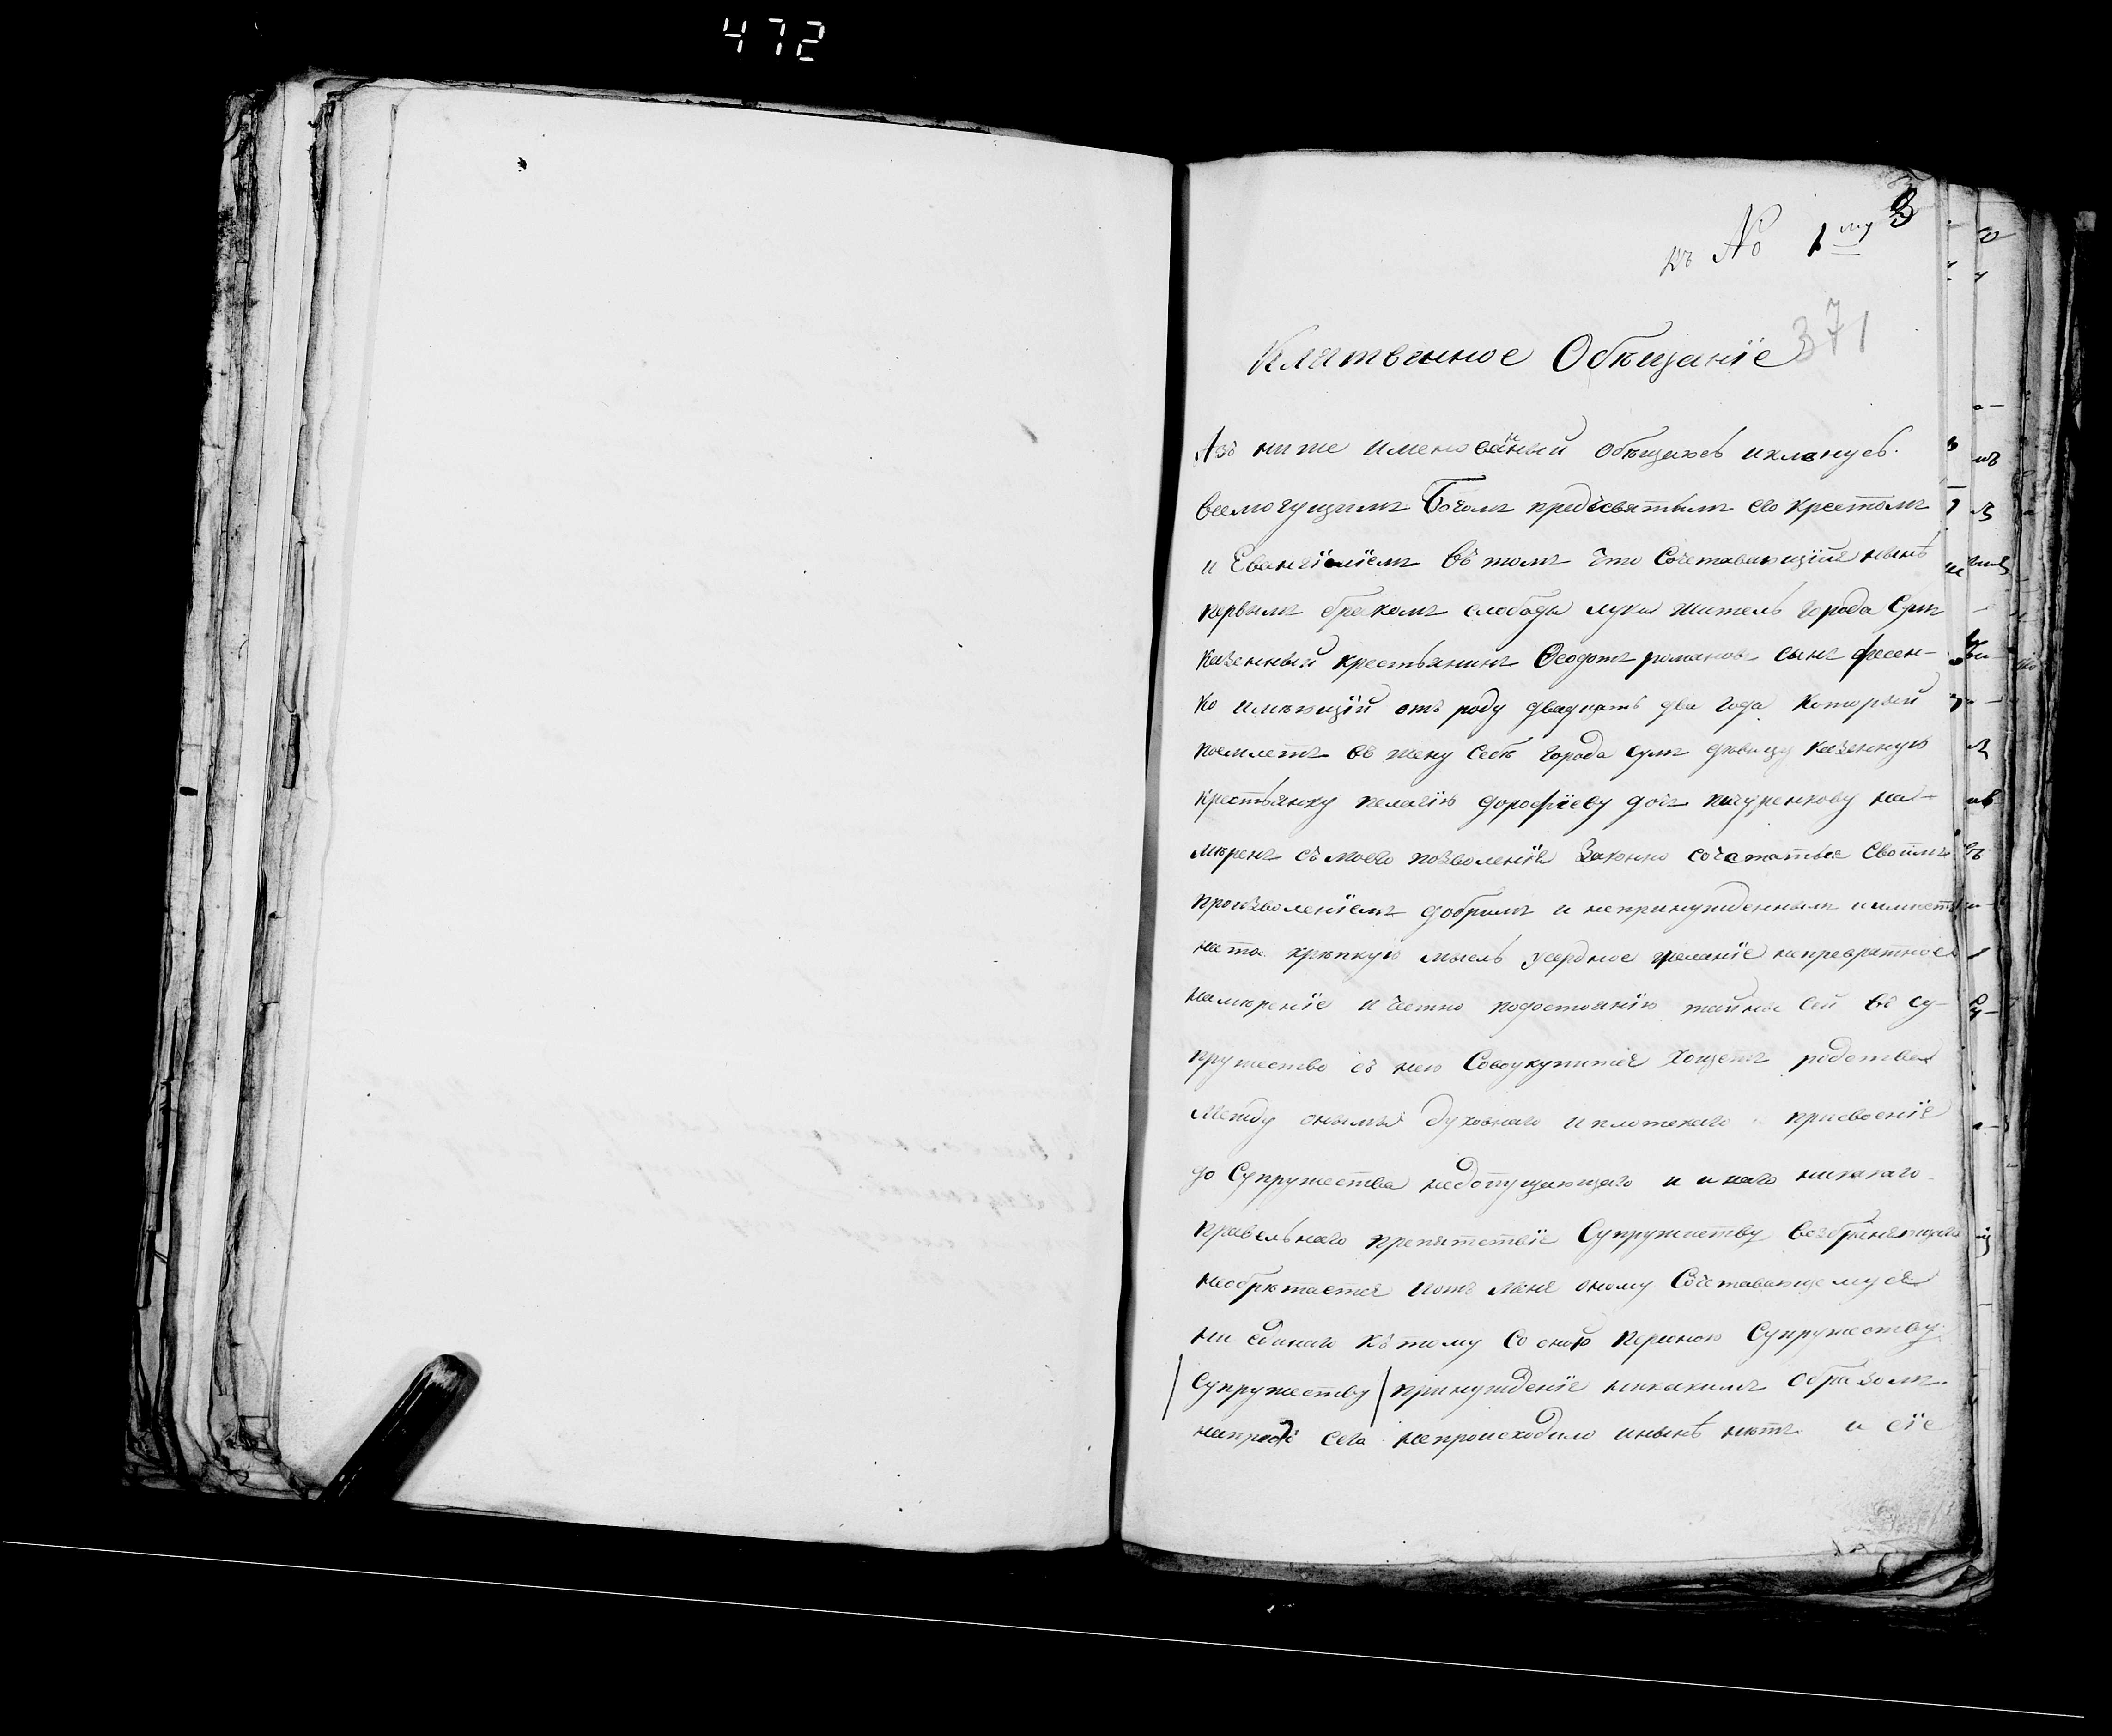 472
3
къ № 1му
371
Клятвенное Обѣщаніе
Азъ ниже именованный обѣщаюсь икленусь
всемогущимъ Богомъ предъсвятымъ его крестомъ
и Евангіліемъ въ томъ что Сочетавающійся нынѣ
первымъ бракомъ слободы луки житель города Сумъ
казенный крестьянинъ Ѳеодотъ романовъ сынъ фесен-
ко имѣющій отъ роду двадцать два года который
поемлетъ въ жену Себѣ города сумъ дѣвицу казенную
крестьянку пелагію дорофіеву дочь пичуренкову на-
мѣренъ съ моего позволенія Законно сочетаться своимъ
произволеніемъ добрымъ и непринужденнымъ иимѣетъ
на то крѣпкую мысль усердное желаніе непревратное
намѣреніе ичестно подостоянію тайны сей въ су-
пружество съ нею Совокупится Хощетъ родства
Между оныма духовнаго иплотскаго присвоенія
до Супружества недопущающаго и инаго никакаго
правельнаго препятствія Супружеству возбраняющаго
необрѣтается иотъ мене оному Сочетавающемуся
ни единаго къ тому со оною Супружеству
Супружеству принужденія никакимъ образомъ
напредъ сего непроисходило инынѣ нѣтъ и сіе